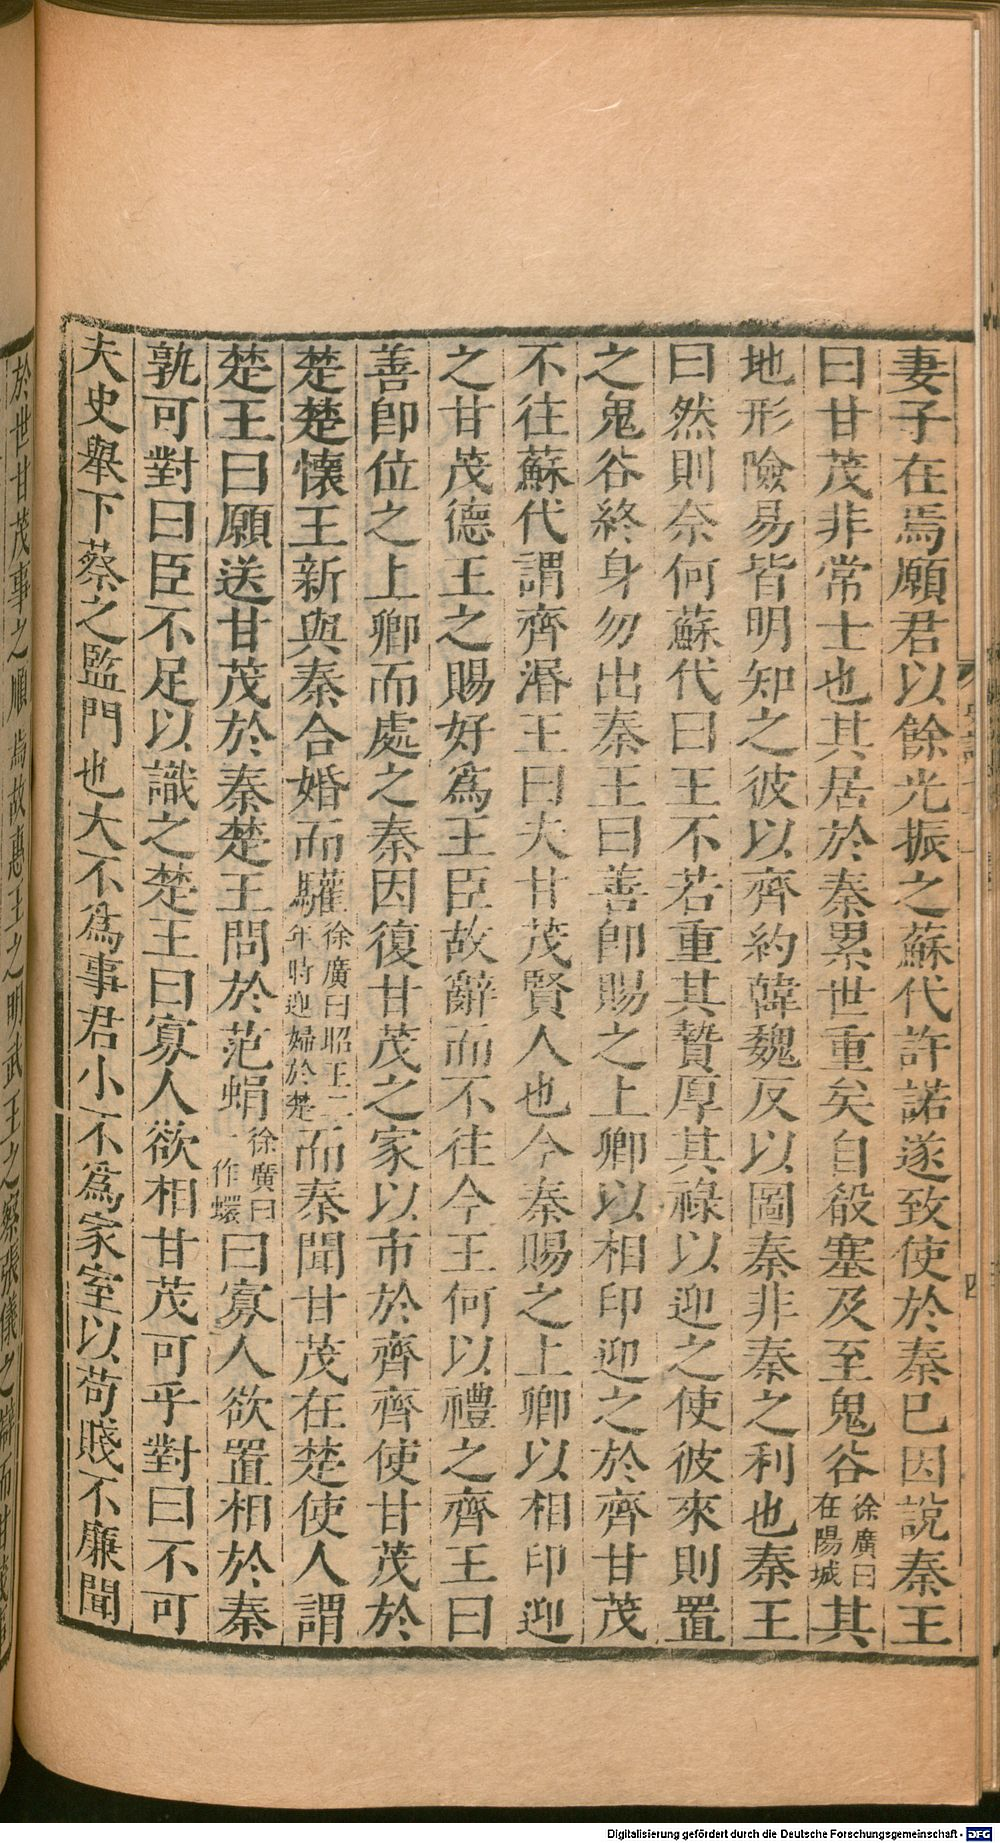 妻子在焉願君以餘光振之蘇代許諾遂致使於秦已因說秦王
曰甘茂非常士也其居於秦累世重矣自殽塞及至鬼谷徐廣曰在陽城其
地形險易皆明知之彼以齊約韓魏反以圖秦非秦之利也秦王
曰然則奈何蘇代曰王不若重其贄厚其祿以迎之使彼來則置
之鬼谷終身勿出秦王曰善卽賜之上卿以相印迎之於齊甘茂
不往蘇代謂齊湣王曰夫甘茂賢人也今秦賜之上卿以相印迎
之甘茂德王之賜好爲王臣故辭而不往今王何以禮之齊王曰
善卽位之上卿而處之秦因復甘茂之家以市於齊齊使甘茂於
楚楚懷王新與秦合婚而驩徐廣曰昭王二年時迎婦於楚而秦聞甘茂在楚使人謂
楚王曰願送甘茂於秦楚王問於范蜎徐廣曰一作蠉曰寡人欲置相於秦
孰可對曰臣不足以識之楚王曰寡人欲相甘茂可乎對曰不可
夫史舉下蔡之監門也大不爲事君小不爲家室以苟賤不廉聞
於世甘茂事之順焉故惠王之明武王之察張儀之辯而甘茂
四
Digitalisierung gefördert durch die Deutsche Forschungsgemeinschaft - DFG